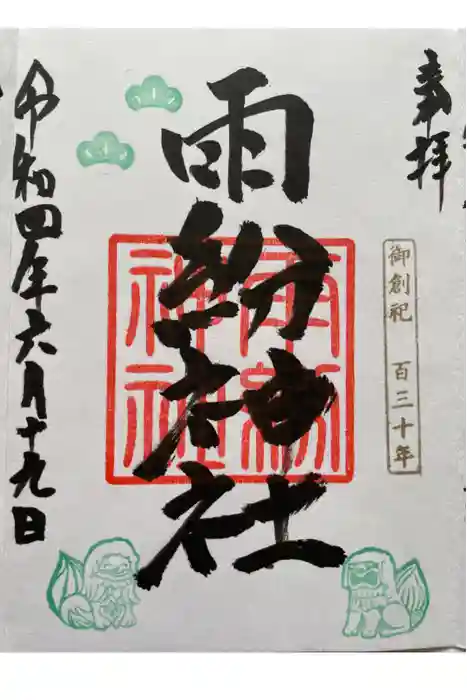 奉拝
御創祀 百三十年
雨紛神社
雨紛神社
令和四年六月十九日